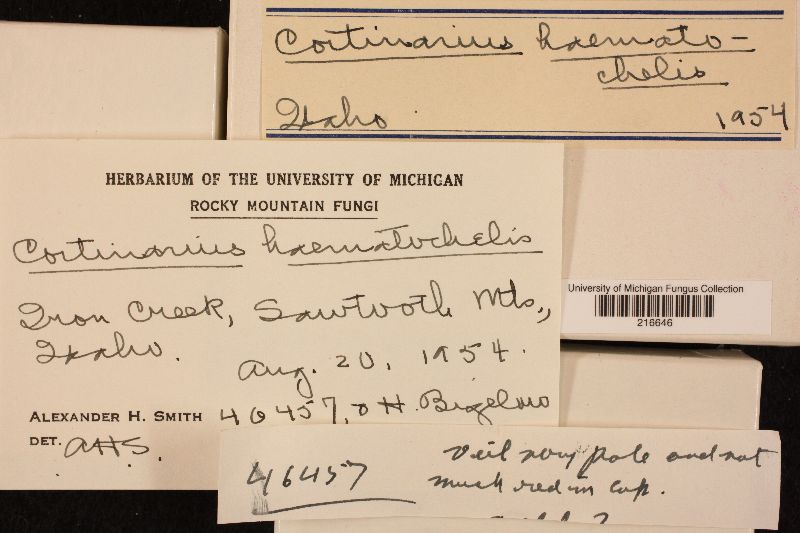 Cortinarius haemato-
chelis
Idaho 1954
HERBARIUM OF THE UNIVERSITY OF MICHIGAN
ROCKY MOUNTAIN FUNGI
Cortinarius haematochelis
Iron Creek, Sawtooth Mts.,
Idaho.
Aug. 20, 1954.
ALEXANDER H. SMITH 46457, & H. Bigelow
DET. AHS.
University of Michigan Fungus Collection
216646
46457 Veil very pale and not
much red in cap.